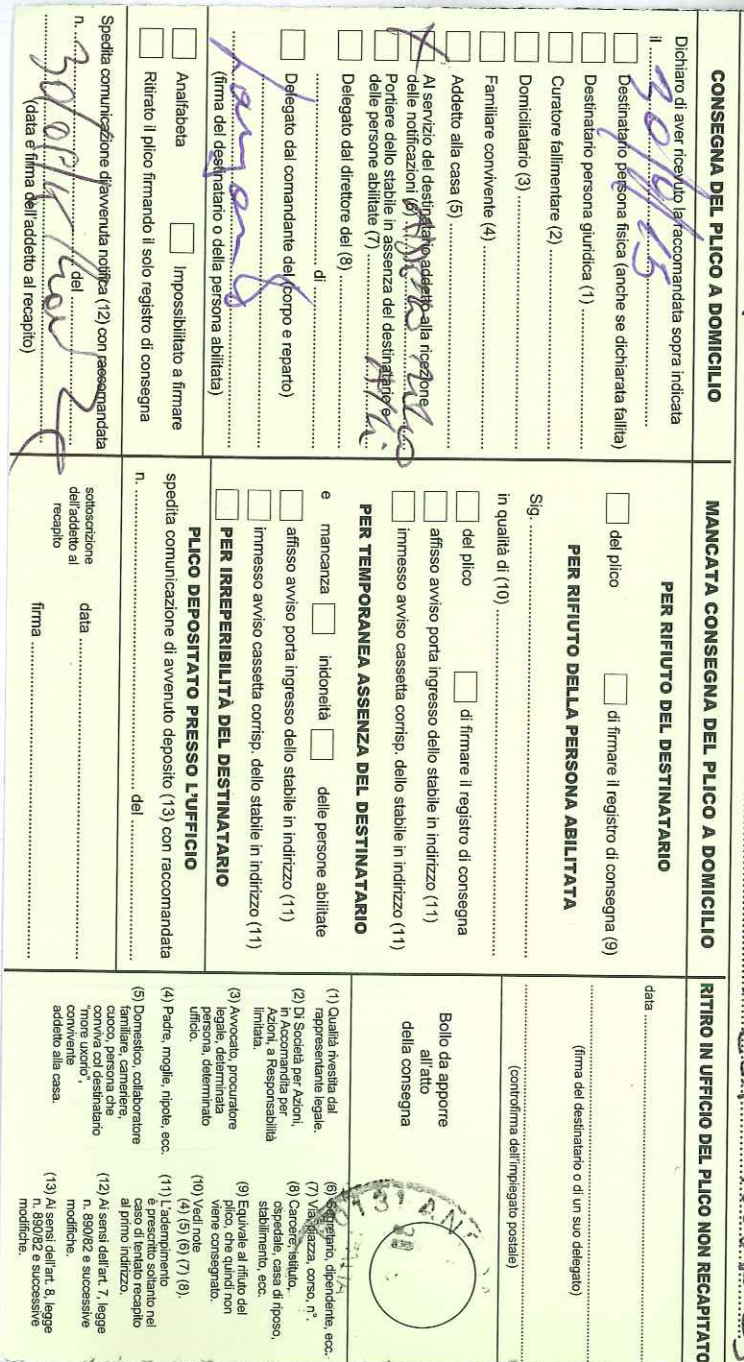 CONSEGNA DEL PLICO A DOMICILIO
Dichiaro di aver ricevuto la raccomandata sopra indicata
il
Destinatario persona fisica (anche se dichiarata fallita)
Destinatario persona giuridica (1)
Curatore fallimentare (2)
Domiciliatario (3)
Familiare convivente (4)
Addetto alla casa (5)
Al servizio del destinatario addetto alla ricezione
delle notificazioni (6)
Portiere dello stabile in assenza del destinatario e
delle persone abilitate (7)
Delegato dal direttore del (8)
di
Delegato dal comandante del (corpo e reparto)
(firma del destinatario o della persona abilitata)
Analfabeta
Impossibilitato a firmare
Ritirato il plico firmando il solo registro di consegna
Spedita comunicazione di avvenuta notifica (12) con raccomandata
n. del
(data e firma dell'addetto al recapito)
MANCATA CONSEGNA DEL PLICO A DOMICILIO
PER RIFIUTO DEL DESTINATARIO
del plico di firmare il registro di consegna (9)
PER RIFIUTO DELLA PERSONA ABILITATA
Sig.
in qualità di (10)
del plico di firmare il registro di consegna
affisso avviso porta ingresso dello stabile in indirizzo (11)
immesso avviso cassetta corrisp. dello stabile in indirizzo (11)
PER TEMPORANEA ASSENZA DEL DESTINATARIO
e mancanza inidoneità delle persone abilitate
affisso avviso porta ingresso dello stabile in indirizzo (11)
immesso avviso cassetta corrisp. dello stabile in indirizzo (11)
PER IRREPERIBILITÀ DEL DESTINATARIO
PLICO DEPOSITATO PRESSO L'UFFICIO
spedita comunicazione di avvenuto deposito (13) con raccomandata
n. del
sottoscrizione
dell'addetto al
recapito
data
firma
RITIRO IN UFFICIO DEL PLICO NON RECAPITATO
data
(firma del destinatario o di un suo delegato)
(controfirma dell'impiegato postale)
Bollo da apporre
all'atto
della consegna
(1) Qualità rivestita dal
rappresentante legale.
(2) Di Società per Azioni,
in Accomandita per
Azioni, a Responsabilità
limitata.
(3) Avvocato, procuratore
legale, determinata
persona, determinato
ufficio.
(4) Padre, moglie, nipote, ecc.
(5) Domestico, collaboratore
familiare, cameriere,
cuoco, persona che
conviva col destinatario
"more uxorio",
convivente
addetto alla casa.
(6) Segretario, dipendente, ecc.
(7) Via, piazza, corso, n°.
(8) Carcere, istituto,
ospedale, casa di riposo,
stabilimento, ecc.
(9) Equivale al rifiuto del
plico, che quindi non
viene consegnato.
(10) Vedi note
(4) (5) (6) (7) (8).
(11) L'adempimento
è prescritto soltanto nel
caso di tentato recapito
al primo indirizzo.
(12) Ai sensi dell'art. 7, legge
n. 890/82 e successive
modifiche.
(13) Ai sensi dell'art. 8, legge
n. 890/82 e successive
modifiche.